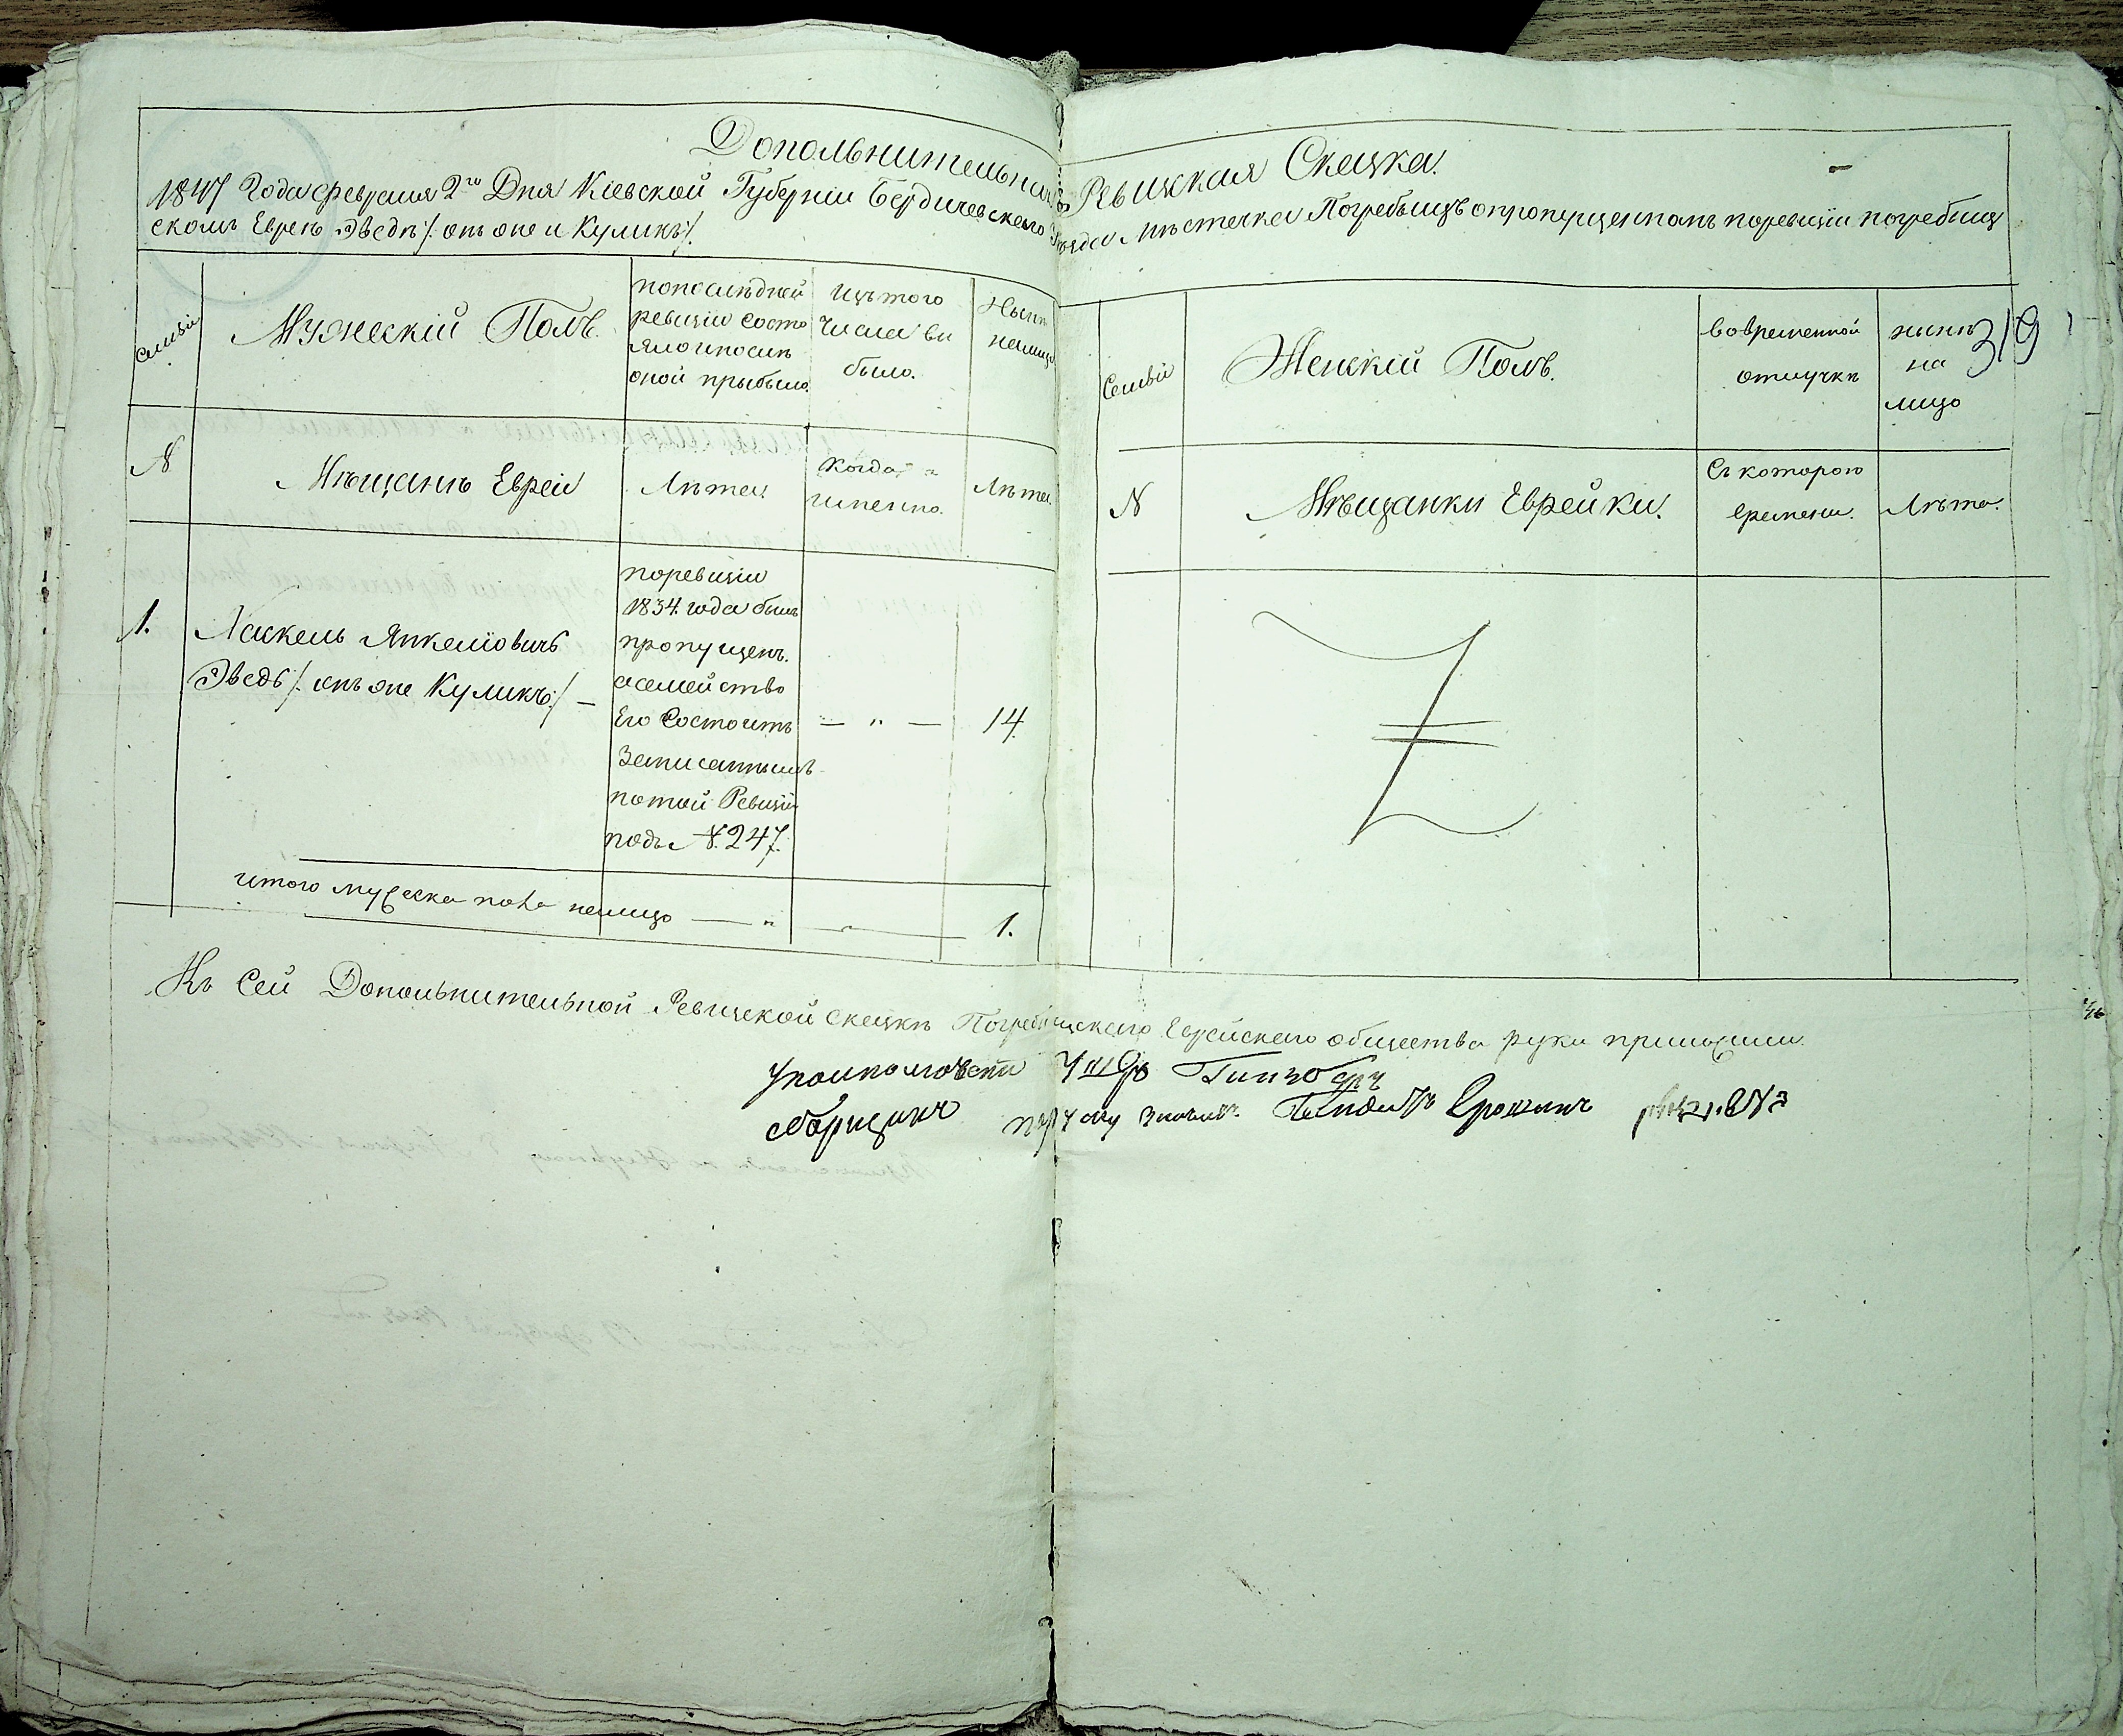 Допольнительная Ревизкая Сказка.
1847 Года февраля 2го Дня Кіевской Губерніи Бердичевского Уезда Мѣстечка Погребыщъ о пропущенномъ поревизіи погребищ
скомъ Евреѣ Эведѣ /: онъ же и Куликъ :/
Семьи
Мужескій Полъ.
попослѣдней
ревизіи состо
яло ипослѣ
оной прыбыло.
Изътого
числа вы
было.
Нынѣ
налицо
№
Мѣщанъ Евреи
Лѣта
Когда
именно.
Лѣта
1.
Хаскель Янкеліовичъ
Эведъ /: онъ же Куликъ :/ —
поревизіи
1834. года былъ
пропущенъ.
асемейство
Его Состоитъ
Записаннымъ
потой Ревизіи
подъ №. 247.
— " —
14
итого мужеска пола налицо — " — 1.
Семьи
Женскій Полъ.
Вовременной
отлучкѣ
нынѣ
на
лицо
319
N
Мѣщанки Еврейки.
Съ которого
времени.
Лѣта.
Къ Сей Дополнительной Ревизской сказкѣ Погребищского Еврейскаго общества руки приложили.
Сборщикъ